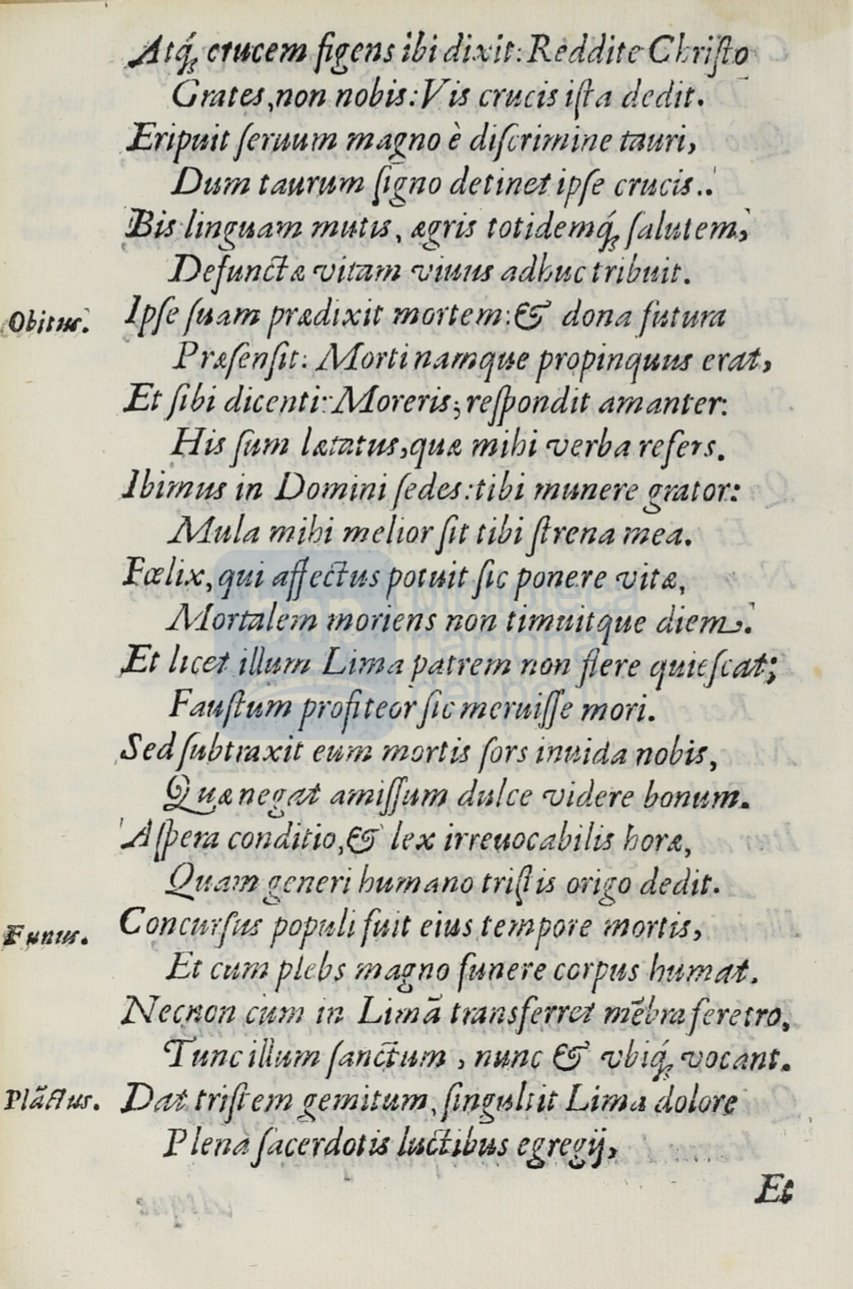 Atq́; crucem figens ibi dixit: Reddite Chriſto
Grates, non nobis: Vis crucis iſta dedit.
Eripuit ſeruum magno è diſcrimine tauri,
Dum taurum ſigno detinet ipſe crucis..
Bis linguam mutis, ægris totidemq́; ſalutem,
Defunctæ vitam viuus adhuc tribuit.
Obitus. Ipſe ſuam prædixit mortem: & dona futura
Præſenſit: Morti namque propinquus erat,
Et ſibi dicenti: Moreris; reſpondit amanter:
His ſum lætatus, quæ mihi verba refers.
Ibimus in Domini ſedes: tibi munere grator:
Mula mihi melior ſit tibi ſtrena mea.
Fœlix, qui affectus potuit ſic ponere vitæ,
Mortalem moriens non timuitque diem.
Et licet illum Lima patrem non flere quieſcat;
Fauſtum profiteor ſic meruiſſe mori.
Sed ſubtraxit eum mortis ſors inuida nobis,
Quæ negat amiſſum dulce videre bonum.
Aſpera conditio, & lex irreuocabilis horæ,
Quam generi humano triſtis origo dedit.
Funus. Concurſus populi fuit eius tempore mortis,
Et cum plebs magno funere corpus humat.
Necnon cum in Limã transferret mẽbra feretro,
Tunc illum ſanctum, nunc & vbiq́; vocant.
Plãctus. Dat triſtem gemitum, ſingultit Lima dolore
Plena ſacerdotis luctibus egregij,
Et